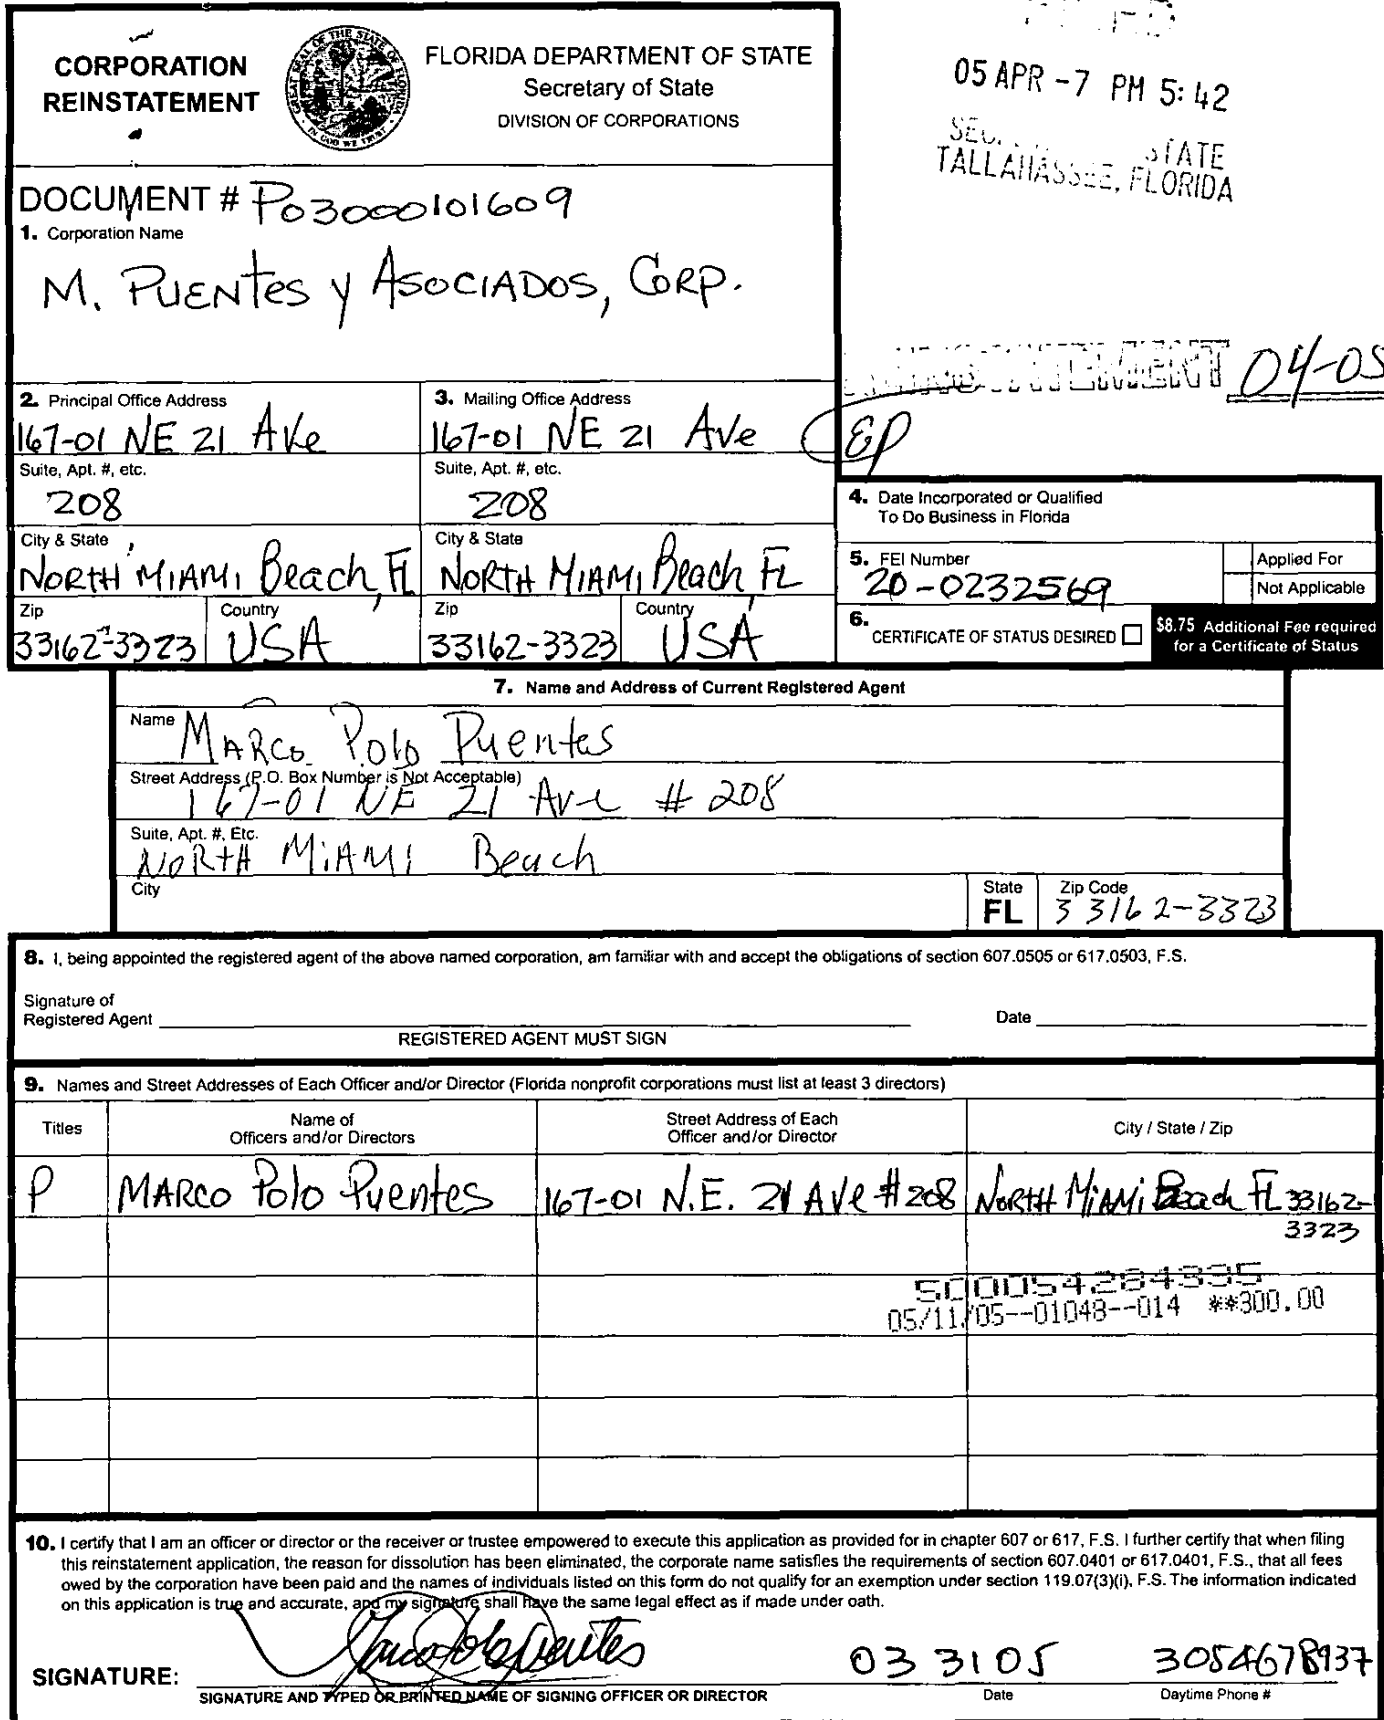 CORPORATION
REINSTATEMENT
GREAT SEAL OF THE STATE OF FLORIDA
IN GOD WE TRUST
FLORIDA DEPARTMENT OF STATE
Secretary of State
DIVISION OF CORPORATIONS
05 APR -7 PM 5:42
STATE
TALLAHASSEE, FLORIDA
DOCUMENT # P03000101609
1. Corporation Name
M. PUENTES Y ASOCIADOS, CORP.
REINSTATEMENT 04-05
EP
2. Principal Office Address
167-01 NE 21 AVe
3. Mailing Office Address
167-01 NE 21 AVe
Suite, Apt. #, etc.
208
Suite, Apt. #, etc.
208
City & State
NORTH MIAMI Beach, FL
City & State
NORTH MIAMI Beach, FL
Zip
33162-3323
Country
USA
Zip
33162-3323
Country
USA
4. Date Incorporated or Qualified
To Do Business in Florida
5. FEI Number
20-0232569
Applied For
Not Applicable
6. CERTIFICATE OF STATUS DESIRED
$8.75 Additional Fee required
for a Certificate of Status
7. Name and Address of Current Registered Agent
Name MARCO Polo Puentes
Street Address (P.O. Box Number is Not Acceptable)
167-01 NE 21 Ave # 208
Suite, Apt. #, Etc.
NORTH MiAMI Beach
City
State
FL
Zip Code
33162-3323
8. I, being appointed the registered agent of the above named corporation, am familiar with and accept the obligations of section 607.0505 or 617.0503, F.S.
Signature of
Registered Agent
Date
REGISTERED AGENT MUST SIGN
9. Names and Street Addresses of Each Officer and/or Director (Florida nonprofit corporations must list at least 3 directors)
Titles
Name of
Officers and/or Directors
Street Address of Each
Officer and/or Director
City / State / Zip
P MARCO Polo Puentes 167-01 N.E. 21 AVe #208 NORTH MiAMi Beach FL 33162-
3323
500054284335
05/11/05--01048--014 **300.00
10. I certify that I am an officer or director or the receiver or trustee empowered to execute this application as provided for in chapter 607 or 617, F.S. I further certify that when filing
this reinstatement application, the reason for dissolution has been eliminated, the corporate name satisfies the requirements of section 607.0401 or 617.0401, F.S., that all fees
owed by the corporation have been paid and the names of individuals listed on this form do not qualify for an exemption under section 119.07(3)(i), F.S. The information indicated
on this application is true and accurate, and my signature shall have the same legal effect as if made under oath.
SIGNATURE: Marco Polo Puentes 03 31 05 3054678937
SIGNATURE AND TYPED OR PRINTED NAME OF SIGNING OFFICER OR DIRECTOR
Date
Daytime Phone #